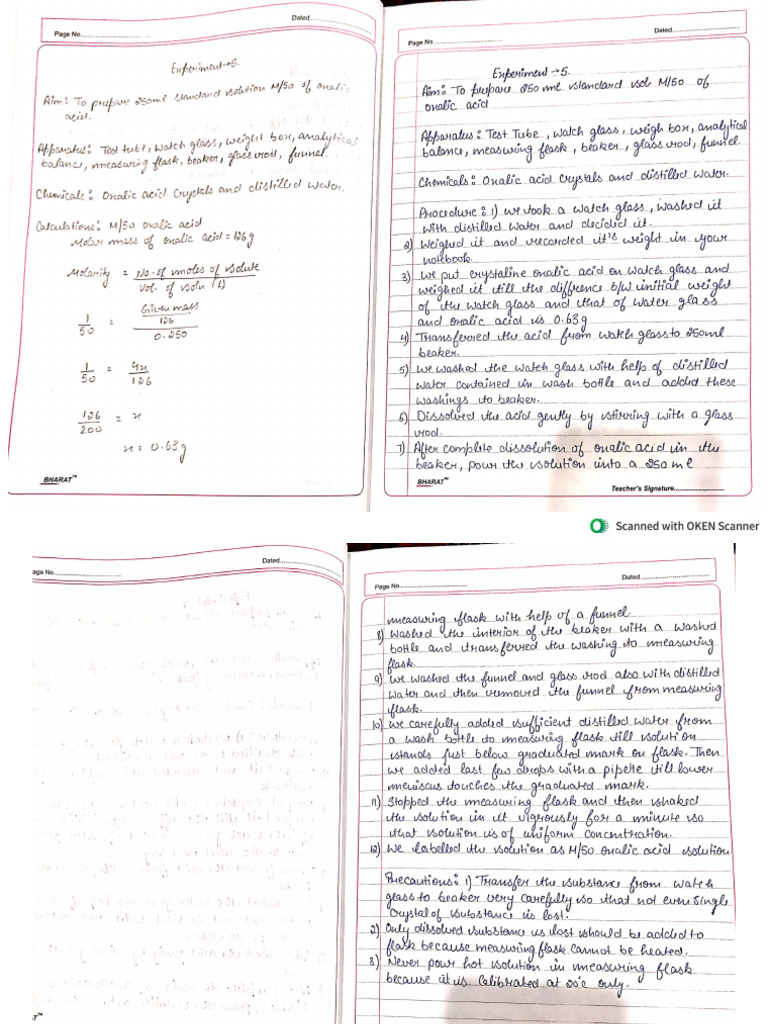 Dated....................
Page No.................................
Experiment → 5.
Aim: To prepare 250ml standard solution M/50 of onalic
acid.
Apparatus: Test tube, watch glass, weight box, analytical
balance, measuring flask, beaker, glass rod, funnel.
Chemicals: Onalic acid crystals and distilled water.
Calculations: M/50 onalic acid
Molar mass of onalic acid = 126g
Molarity = No. of moles of solute
Vol. of soln (l)
1/50 = Given mass/126
0.250
1/50 = 4x/126
126/200 = x
x = 0.63g
BHARAT™
Dated....................
Page No.................................
Experiment → 5.
Aim: To prepare 250 ml standard sol M/50 of
onalic acid
Apparatus: Test Tube, watch glass, weigh box, analytical
balance, measuring flask, beaker, glass rod, funnel
Chemicals: Onalic acid crystals and distilled water.
Procedure: 1) we took a watch glass, washed it
with distilled water and decided it.
2) Weighed it and recorded it's weight in your
notebook.
3) we put crystaline onalic acid on watch glass and
weighed it till the difference b/w initial weight
of the watch glass and that of water glass
and onalic acid is 0.63g
4) Transferred the acid from watch glass to 250ml
beaker.
5) we washed the watch glass with help of distilled
water contained in wash bottle and added these
washings to beaker.
6) Dissolved the acid gently by stirring with a glass
rod.
7) After complete dissolution of onalic acid in the
beaker, pour the solution into a 250 ml
BHARAT™
Teacher's Signature....................
Scanned with OKEN Scanner
Dated....................
age No.................................
T™
Dated....................
Page No.................................
measuring flask with help of a funnel.
8) Washed the interior of the beaker with a washed
bottle and transferred the washing to measuring
flask.
9) we washed the funnel and glass rod also with distilled
water and then removed the funnel from measuring
flask.
10) we carefully added sufficient distilled water from
a wash bottle to measuring flask till solution
stands just below graduated mark on flask. Then
we added last few drops with a pipette till lower
meniscus touches the graduated mark.
11) Stopped the measuring flask and then shaked
the solution in it vigrously for a minute so
that solution is of uniform concentration.
12) We labelled the solution as M/50 onalic acid solution
Precautions: 1) Transfer the substance from watch
glass to beaker very carefully so that not even single
crystal of substance is lost.
2) Only dissolved substance is lost should be added to
flask because measuring flask cannot be heated.
3) Never pour hot solution in measuring flask
because it is calibrated at 20°c only.